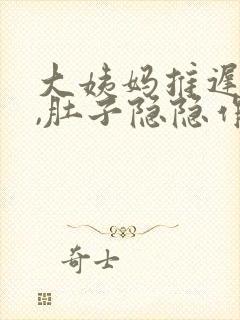 大姨妈推迟
,肚子隐隐作
奇士